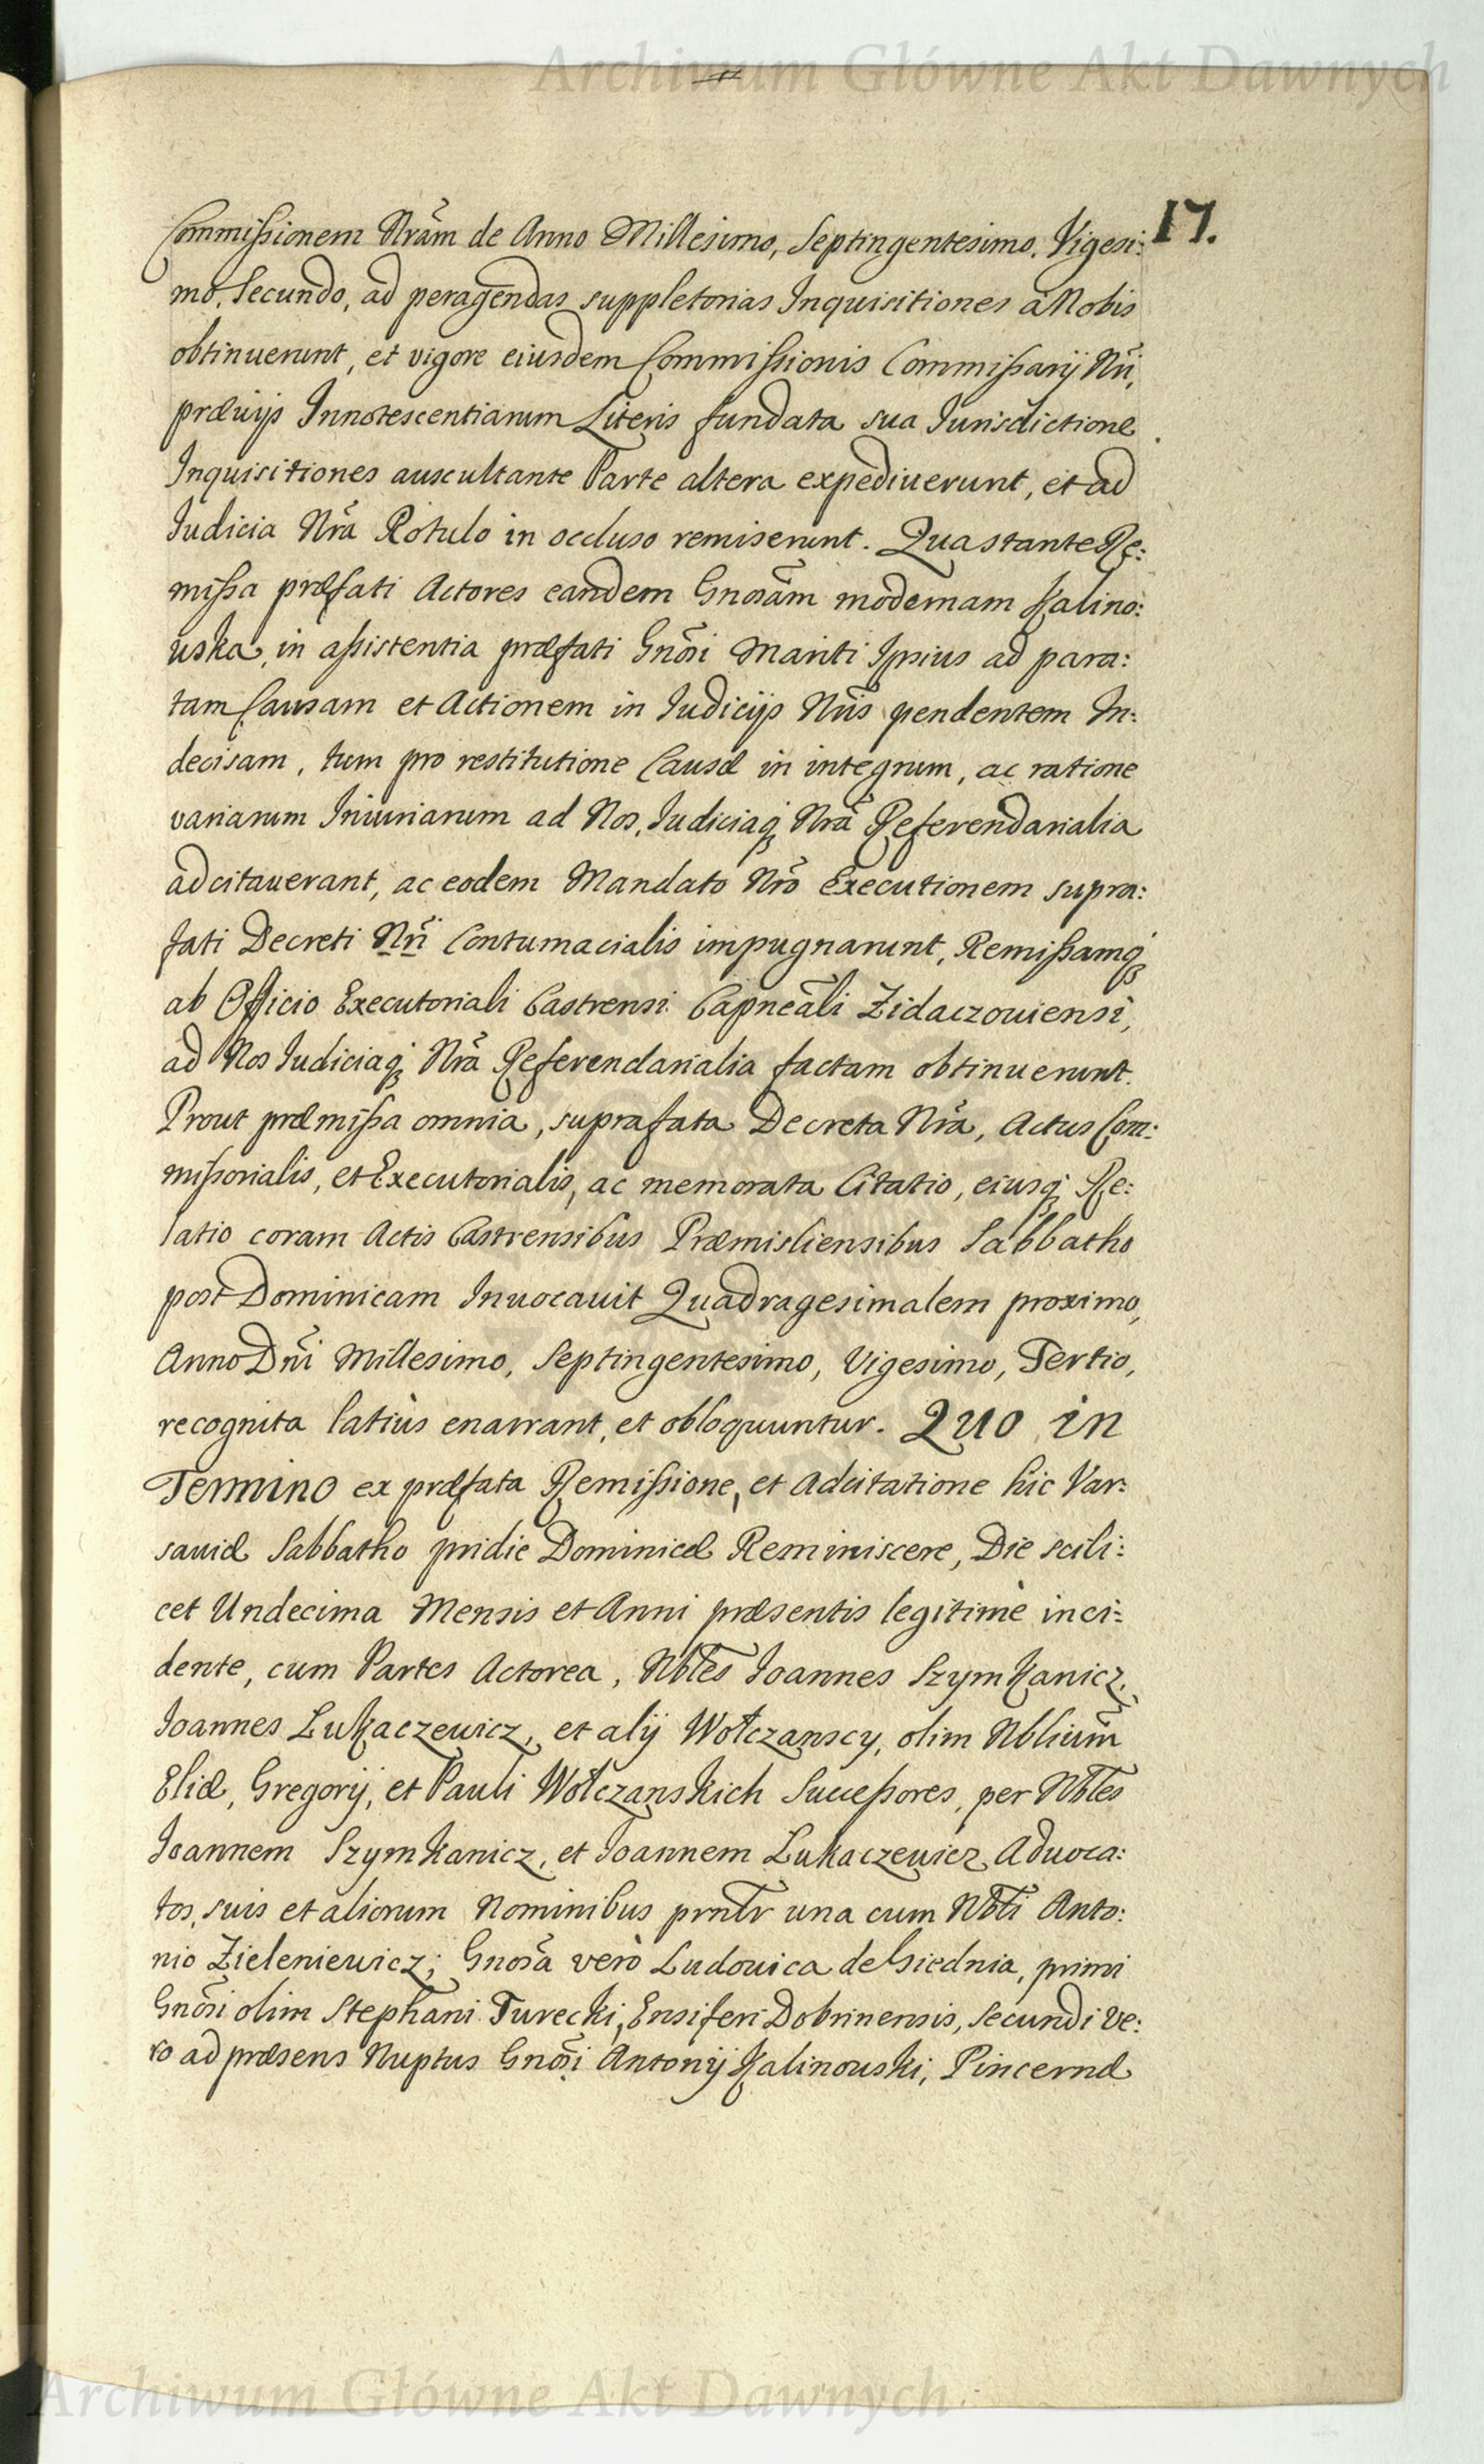 Archiwum Główne Akt Dawnych
17.
Commissionem Nrãm de Anno Millesimo, Septingentesimo, Vigesi:
mo, Secundo, ad peragendas suppletorias Inquisitiones à Nobis
obtinuerunt, et vigore eiusdem Commissionis Commissarij Nrĩ,
prævijs Innotescentiarum Literis fundata sua Iurisdictione
Inquisitiones auscultante Parte altera expediverunt, et ad
Iudicia Nrã Rotulo in occluso remiserunt. Qua stante Re:
missa præfati Actores eandem Gnosãm modernam Kalino:
uska, in assistentia præfati Gnõsi Mariti Ipsius ad para:
tam Causam et Actionem in Iudicijs Nrĩs pendentem In:
decisam, tum pro restitutione Causæ in integrum, ac ratione
variarum Iniuriarum ad Nos, Iudiciaq; Nrã Referendarialia
adcitauerant, ac eodem Mandato Nrõ Executionem supra:
fati Decreti Nrĩ Contumacialis impugnarunt, Remissamq;
ab Officio Executoriali Castrensi Capneãli Zidaczouiensi,
ad Nos Iudiciaq; Nrã Referendarialia factam obtinuerunt.
Prout præmissa omnia, suprafata Decreta Nrã, Actus Com:
missorialis, et Executorialis, ac memorata Citatio, eiusq; Re:
latio coram Actis Castrensibus Præmisliensibus Sabbatho
post Dominicam Inuocauit Quadragesimalem proximo,
Anno Dnĩ Millesimo, Septingentesimo, Vigesimo, Tertio,
recognita latiùs enarrant, et obloquuntur. Quo in
Termino ex præfata Remissione, et Adcitatione hic Var:
sauiæ Sabbatho pridie Dominicæ Reminiscere, Die scili:
cet Undecima Mensis et Anni præsentis legitimè inci:
dente, cum Partes Actorea, Nbles Ioannes Szymkanicz,
Ioannes Lukaczewicz, et alij Wołczanscy, olim Nbliũm
Eliæ, Gregorij, et Pauli Wołczanskich Successores, per Nbles
Ioannem Szymkanicz, et Ioannem Lukaczewicz Aduoca:
tos, suis et aliorum Nominibus prntr una cum Nbli Anto:
nio Zieleniewicz; Gnosã verò Ludouica de Siednia, primi
Gnõsi olim Stephani Turecki, Ensiferi Dobrinensis, secundi ve:
ro ad præsens Nuptus Gnõsi Antonij Kalinouski, Pincernæ
Archiwum Główne Akt Dawnych